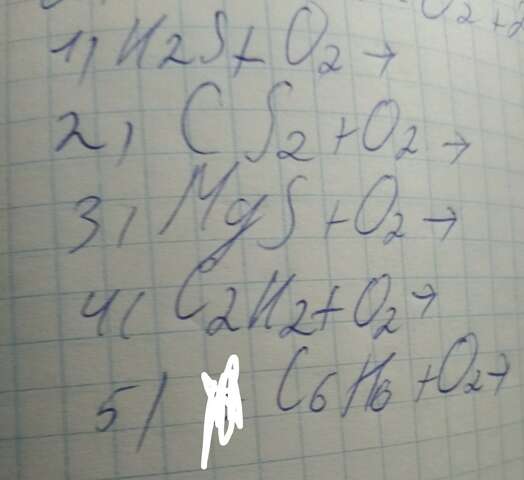 O₂ + 2
1) H2S + O₂ →
2) CS₂ + O₂ →
3) MgS + O₂ →
4) C₂H₂ + O₂ →
5) C₆H₆ + O₂ →